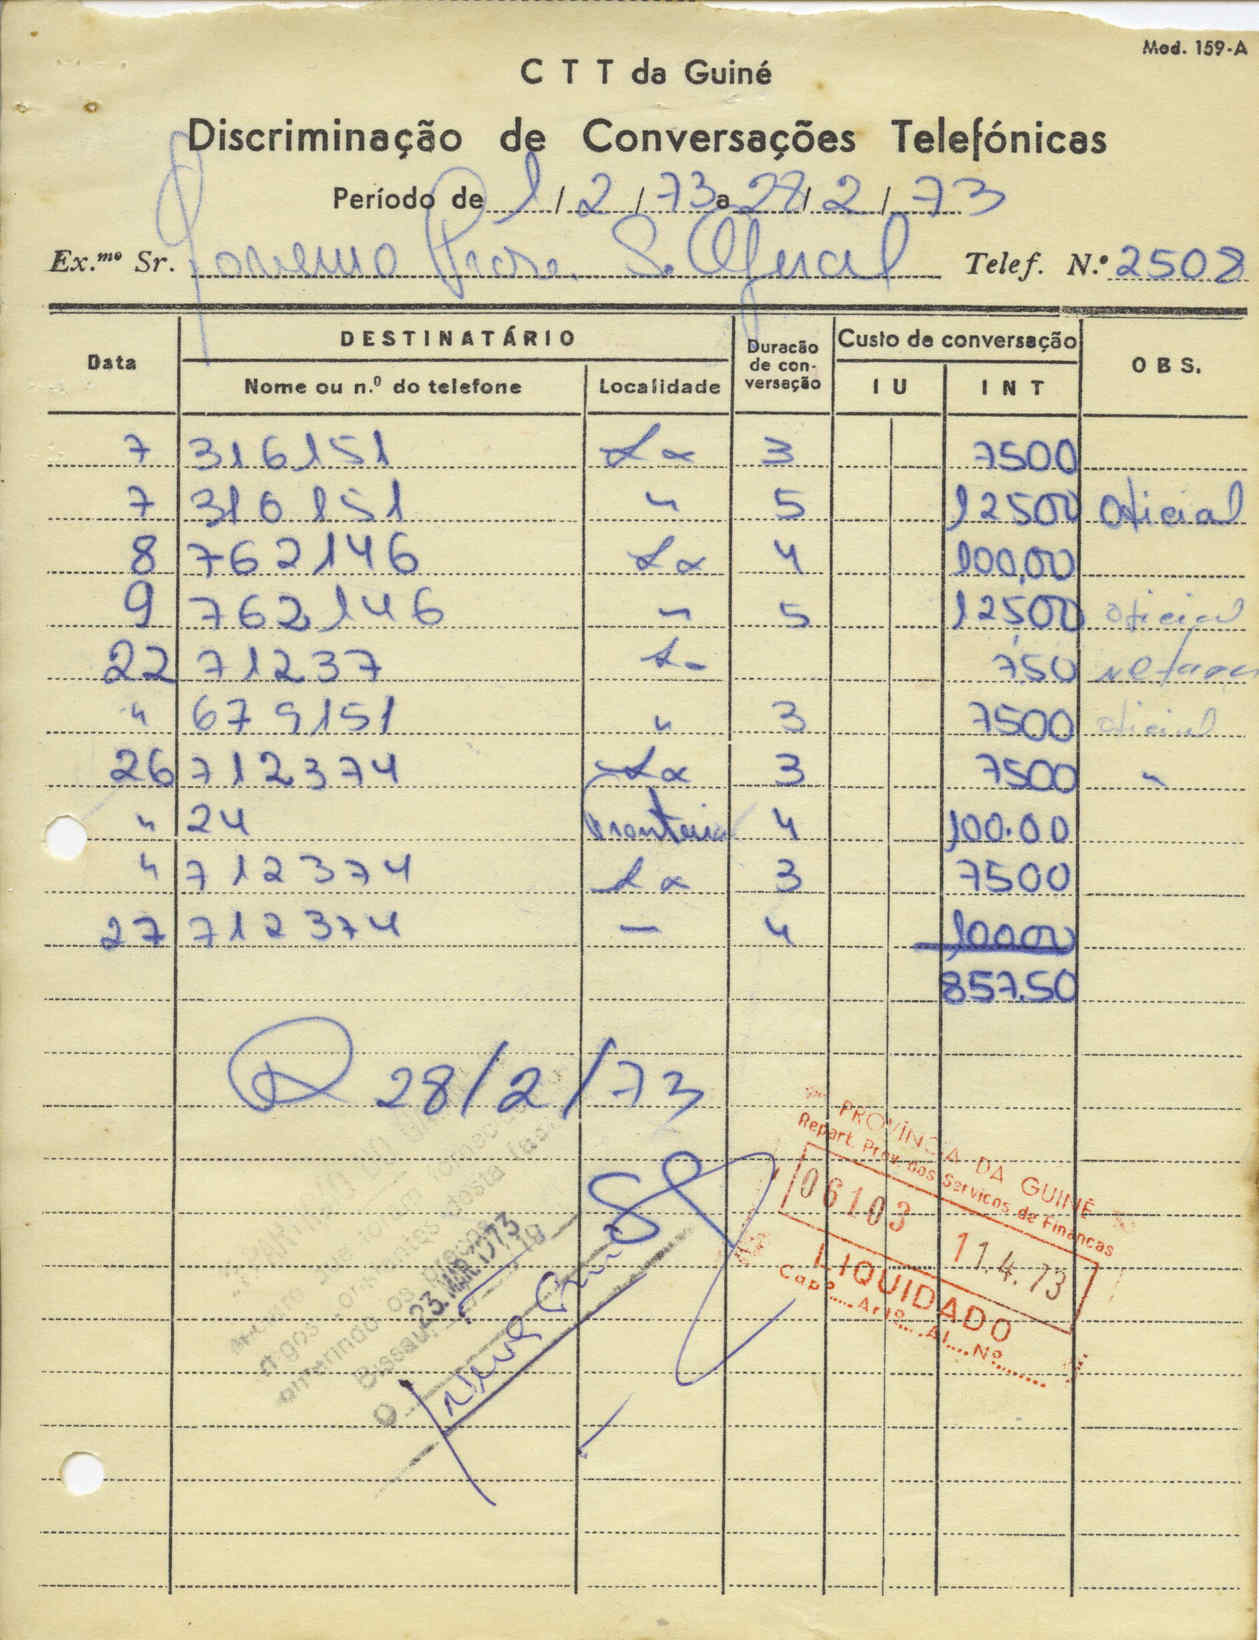 Mod. 159-A
C T T da Guiné
Discriminação de Conversações Telefónicas
Período de 1/2/73 a 28/2/73
Ex.mo Sr. Governo Prov. S. Oficial Telef. N.º 2508
Data DESTINATÁRIO Duracão de con-versação Custo da conversação O B S.
Nome ou n.º do telefone Localidade I U I N T
7 316151 Lx 3 7500
7 316151 " 5 12500 Oficial
8 762146 Lx 4 100,00
9 762146 " 5 12500 oficial
22 71237 L- 7,50
" 679151 " 3 7500 oficial
26 712374 Lx 3 7500 "
" 24 4 100.00
" 712374 Lx 3 7500
27 712374 — 4 10000
857.50
28/2/73
PROVÍNCIA DA GUINÉ
Repart. Prov. dos Servicos de Financas
06103
11.4.73
LIQUIDADO
Cap.º.... Art.º.... Al.... N.º
23. MAR. 1973
Bissau,
O